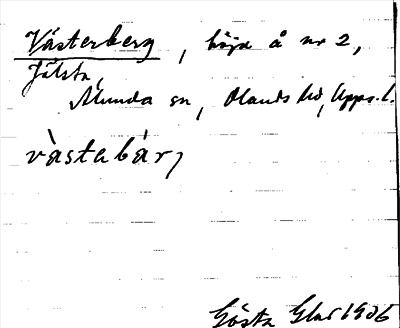 Västerberg, höjd å nr 2,
Jälsta,
Alunda sn, Olands hd, Upps. l.
västabär,
Gösta 1906